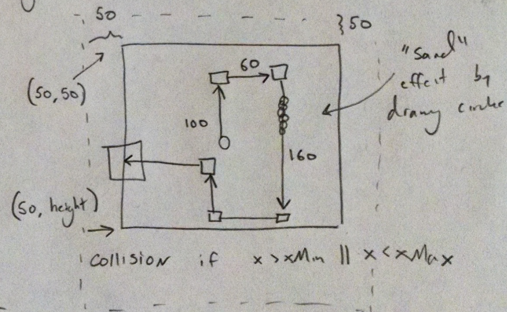 50
}50
(50,50)
60
"Sand"
effect by
drawing circles
100
160
(50, height)
collision if x > xMin || x < xMax